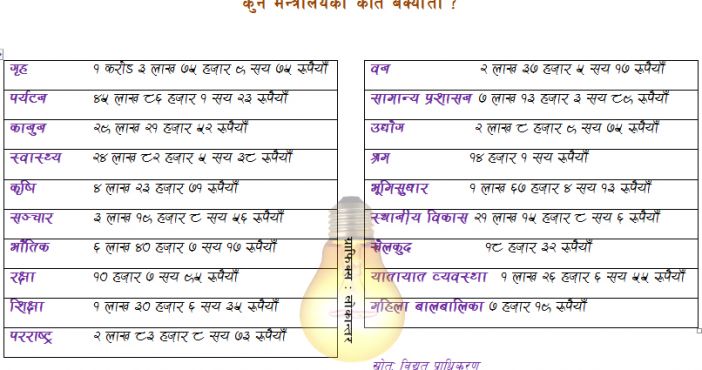 कुन मन्त्रालयको कति बक्यौता ?
गृह १ करोड ३ लाख ७५ हजार ९ सय ७५ रुपैयाँ
पर्यटन ४५ लाख ८६ हजार १ सय २३ रुपैयाँ
कानुन २९ लाख २१ हजार ५२ रुपैयाँ
स्वास्थ्य २४ लाख ८२ हजार ५ सय ३८ रुपैयाँ
कृषि ४ लाख २३ हजार ७१ रुपैयाँ
सञ्चार ३ लाख १९ हजार ८ सय ५६ रुपैयाँ
भौतिक ६ लाख ४० हजार ७ सय १७ रुपैयाँ
रक्षा १० हजार ७ सय ९५ रुपैयाँ
शिक्षा १ लाख ३० हजार ६ सय ३५ रुपैयाँ
परराष्ट्र २ लाख ८३ हजार ८ सय ७३ रुपैयाँ
ग्राफिक्स : लोकान्तर
वन २ लाख ३७ हजार ५ सय १७ रुपैयाँ
सामान्य प्रशासन ७ लाख १३ हजार ३ सय ८९ रुपैयाँ
उद्योज २ लाख ८ हजार ९ सय ७५ रुपैयाँ
श्रम १४ हजार १ सय रुपैयाँ
भूमिसुधार १ लाख ६७ हजार ४ सय १३ रुपैयाँ
स्थानीय विकास २१ लाख १५ हजार ८ सय ६ रुपैयाँ
खेलकुद १८ हजार ३२ रुपैयाँ
यातायात व्यवस्था १ लाख २६ हजार ६ सय ५५ रुपैयाँ
महिला बालबालिका ७ हजार १९ रुपैयाँ
स्रोत: विद्युत प्राधिकरण